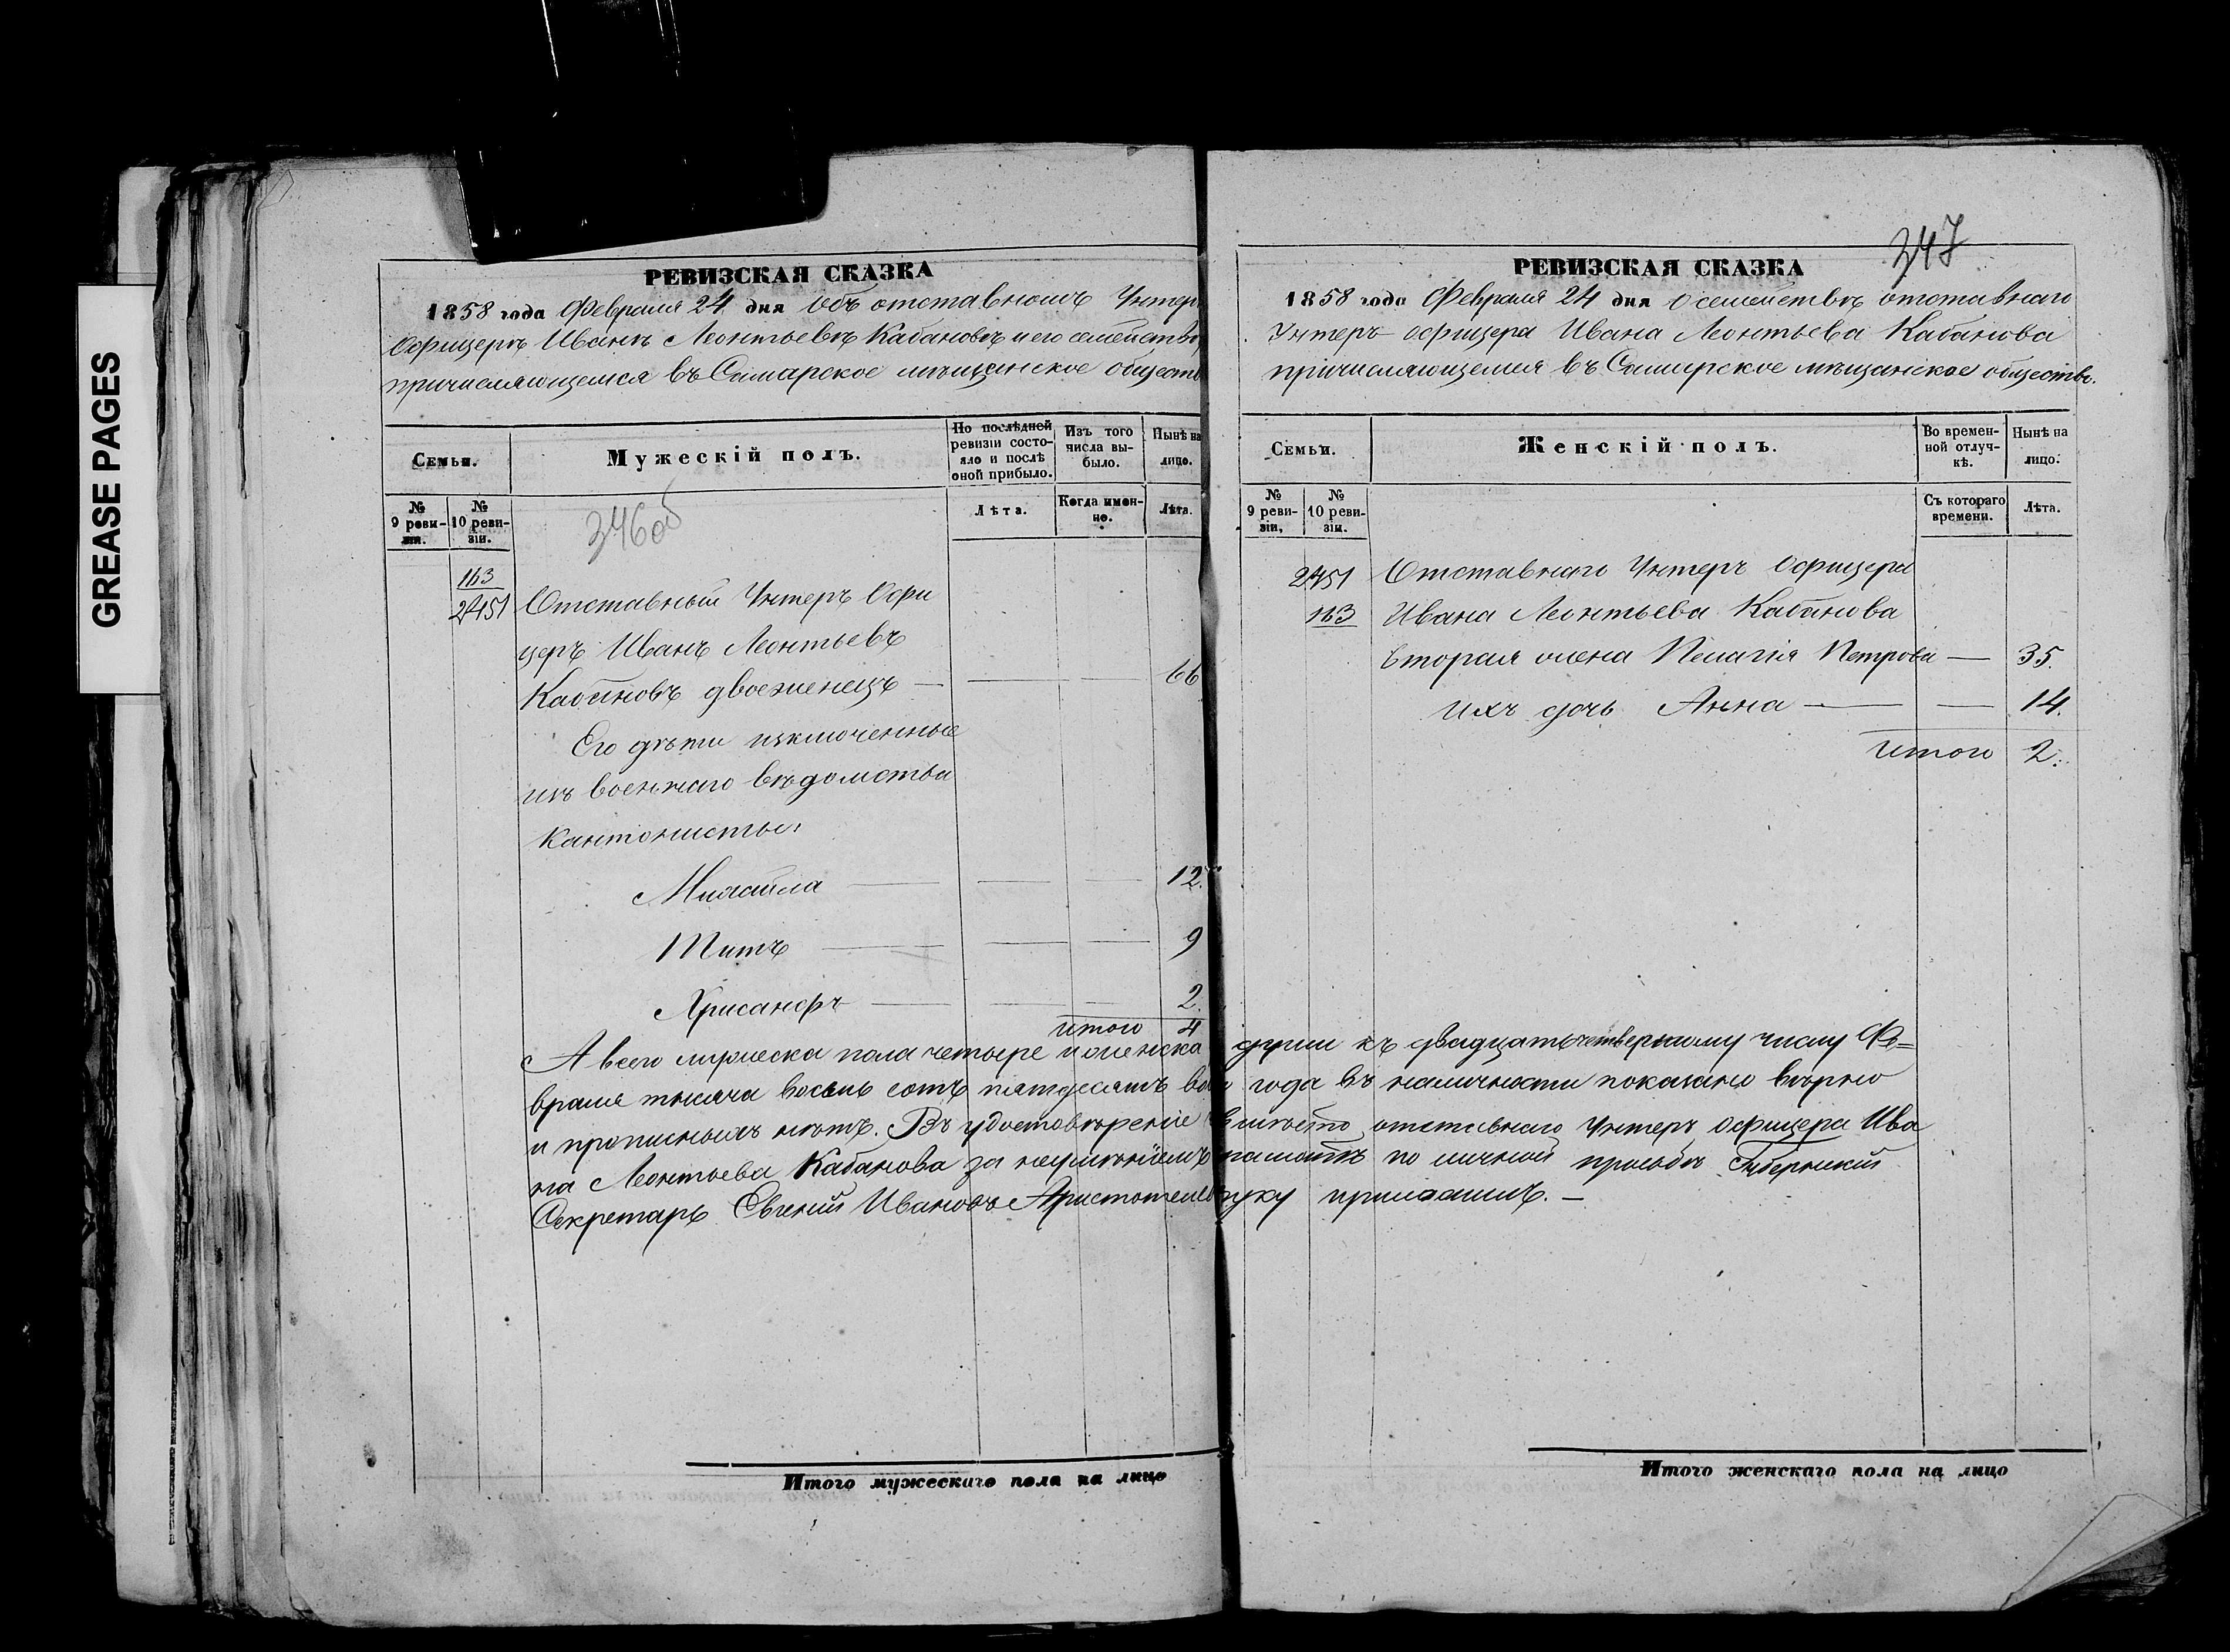 GREASE PAGES
РЕВИЗСКАЯ СКАЗКА
1858 года Февраля 24 дня объ отставномъ Унтеръ
Офицерѣ Иванѣ Леонтьевѣ Кабановѣ и его семейство,
причисляющемся въ Самарское мѣщанское обществ
Семьи.
Мужескій полъ.
По послѣдней ревизіи состояло и послѣ оной прибыло.
Изъ того числа выбыло.
Нынѣ на лицо.
№ 9 ревизіи.
№ 10 ревизіи.
Лѣта.
Когда именно.
Лѣта.
346об
163
2451 Отставный Унтеръ Офи
церъ Иванъ Леонтьевъ
Кабановъ двоеженецъ — 66
Его дѣти изключенные
изъ военнаго вѣдомства
кантонисты:
Михайла — 12.
Титъ — 9
Хрисанфъ — 2.
итого 4
РЕВИЗСКАЯ СКАЗКА
247
1858 года Февраля 24 дня о семействѣ отставнаго
Унтеръ-офицера Ивана Леонтьева Кабанова
причисляющемся въ Самарское мѣщанское общество.
Семьи.
Женскій полъ.
Во временной отлучкѣ.
Нынѣ на лицо.
№ 9 ревизіи,
№ 10 ревизіи.
Съ котораго времени.
Лѣта.
2451 Отставнаго Унтеръ Офицера
163 Ивана Леонтьева Кабанова
вторая жена Пелагія Петрова — 35.
ихъ дочь Анна — 14.
итого 2.
А всего мужеска пола четыре и женска души къ двадцать четвертому числу Фе=
враля тысяча восемь сотъ пятдесятъ года въ наличности показано вѣрно
и прописныхъ нѣтъ. Въ удостовѣреніе вмѣсто отставнаго Унтеръ офицера Ива
на Леонтьева Кабанова за неумѣніемъ грамотѣ по личной просьбѣ Губернскій
Секретарь Евгеній Ивановъ руку приложилъ. —
Итого мужескаго пола на лицо
Итого женскаго пола на лицо